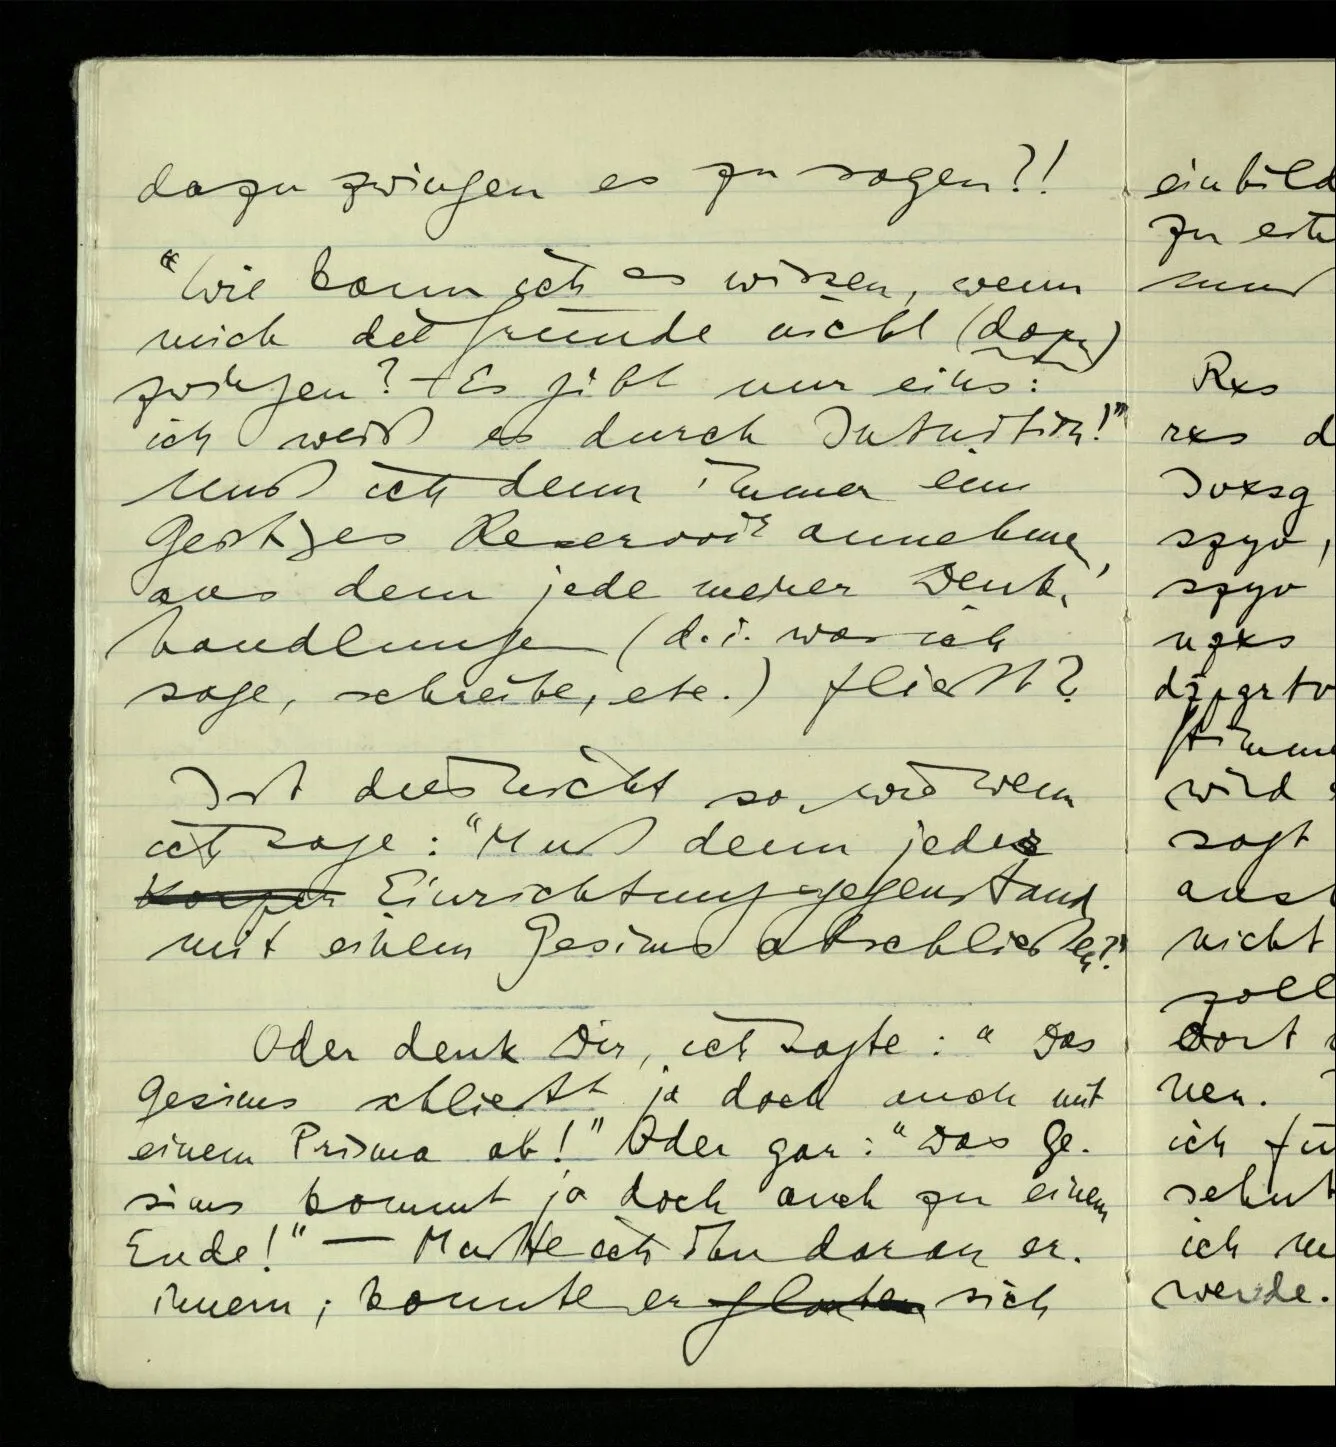 dazu zwingen es zu sagen?!
"Wie kann ich es wissen, wenn
mich die Gründe nicht (dazu)
zwingen? – Es gibt nur eins:
ich weiß es durch Intuition!"
Muß ich denn immer ein
geistiges Reservoir annehmen,
aus dem jede meiner Denk-
handlungen (d.i. was ich
sage, schreibe, etc.) fließt?
Ist dies nicht so, wie wenn
ich sage: "Muß denn jeder
Körper Einrichtungsgegenstand
mit einem Gesims abschließen?"
Oder denk Dir, ich sagte: "Das
Gesims schließt ja doch auch mit
einem Prisma ab!" Oder gar: "Das Ge-
sims kommt ja doch auch zu einem
Ende!" — Mußte ich ihn daran er-
innern; konnte er glauben sich
einbild
zu
Rxs
rxs d
szyv,
szyv
stimme
wird
sagt
nicht
soll
dort
nen.
ich fü
ich
werde.